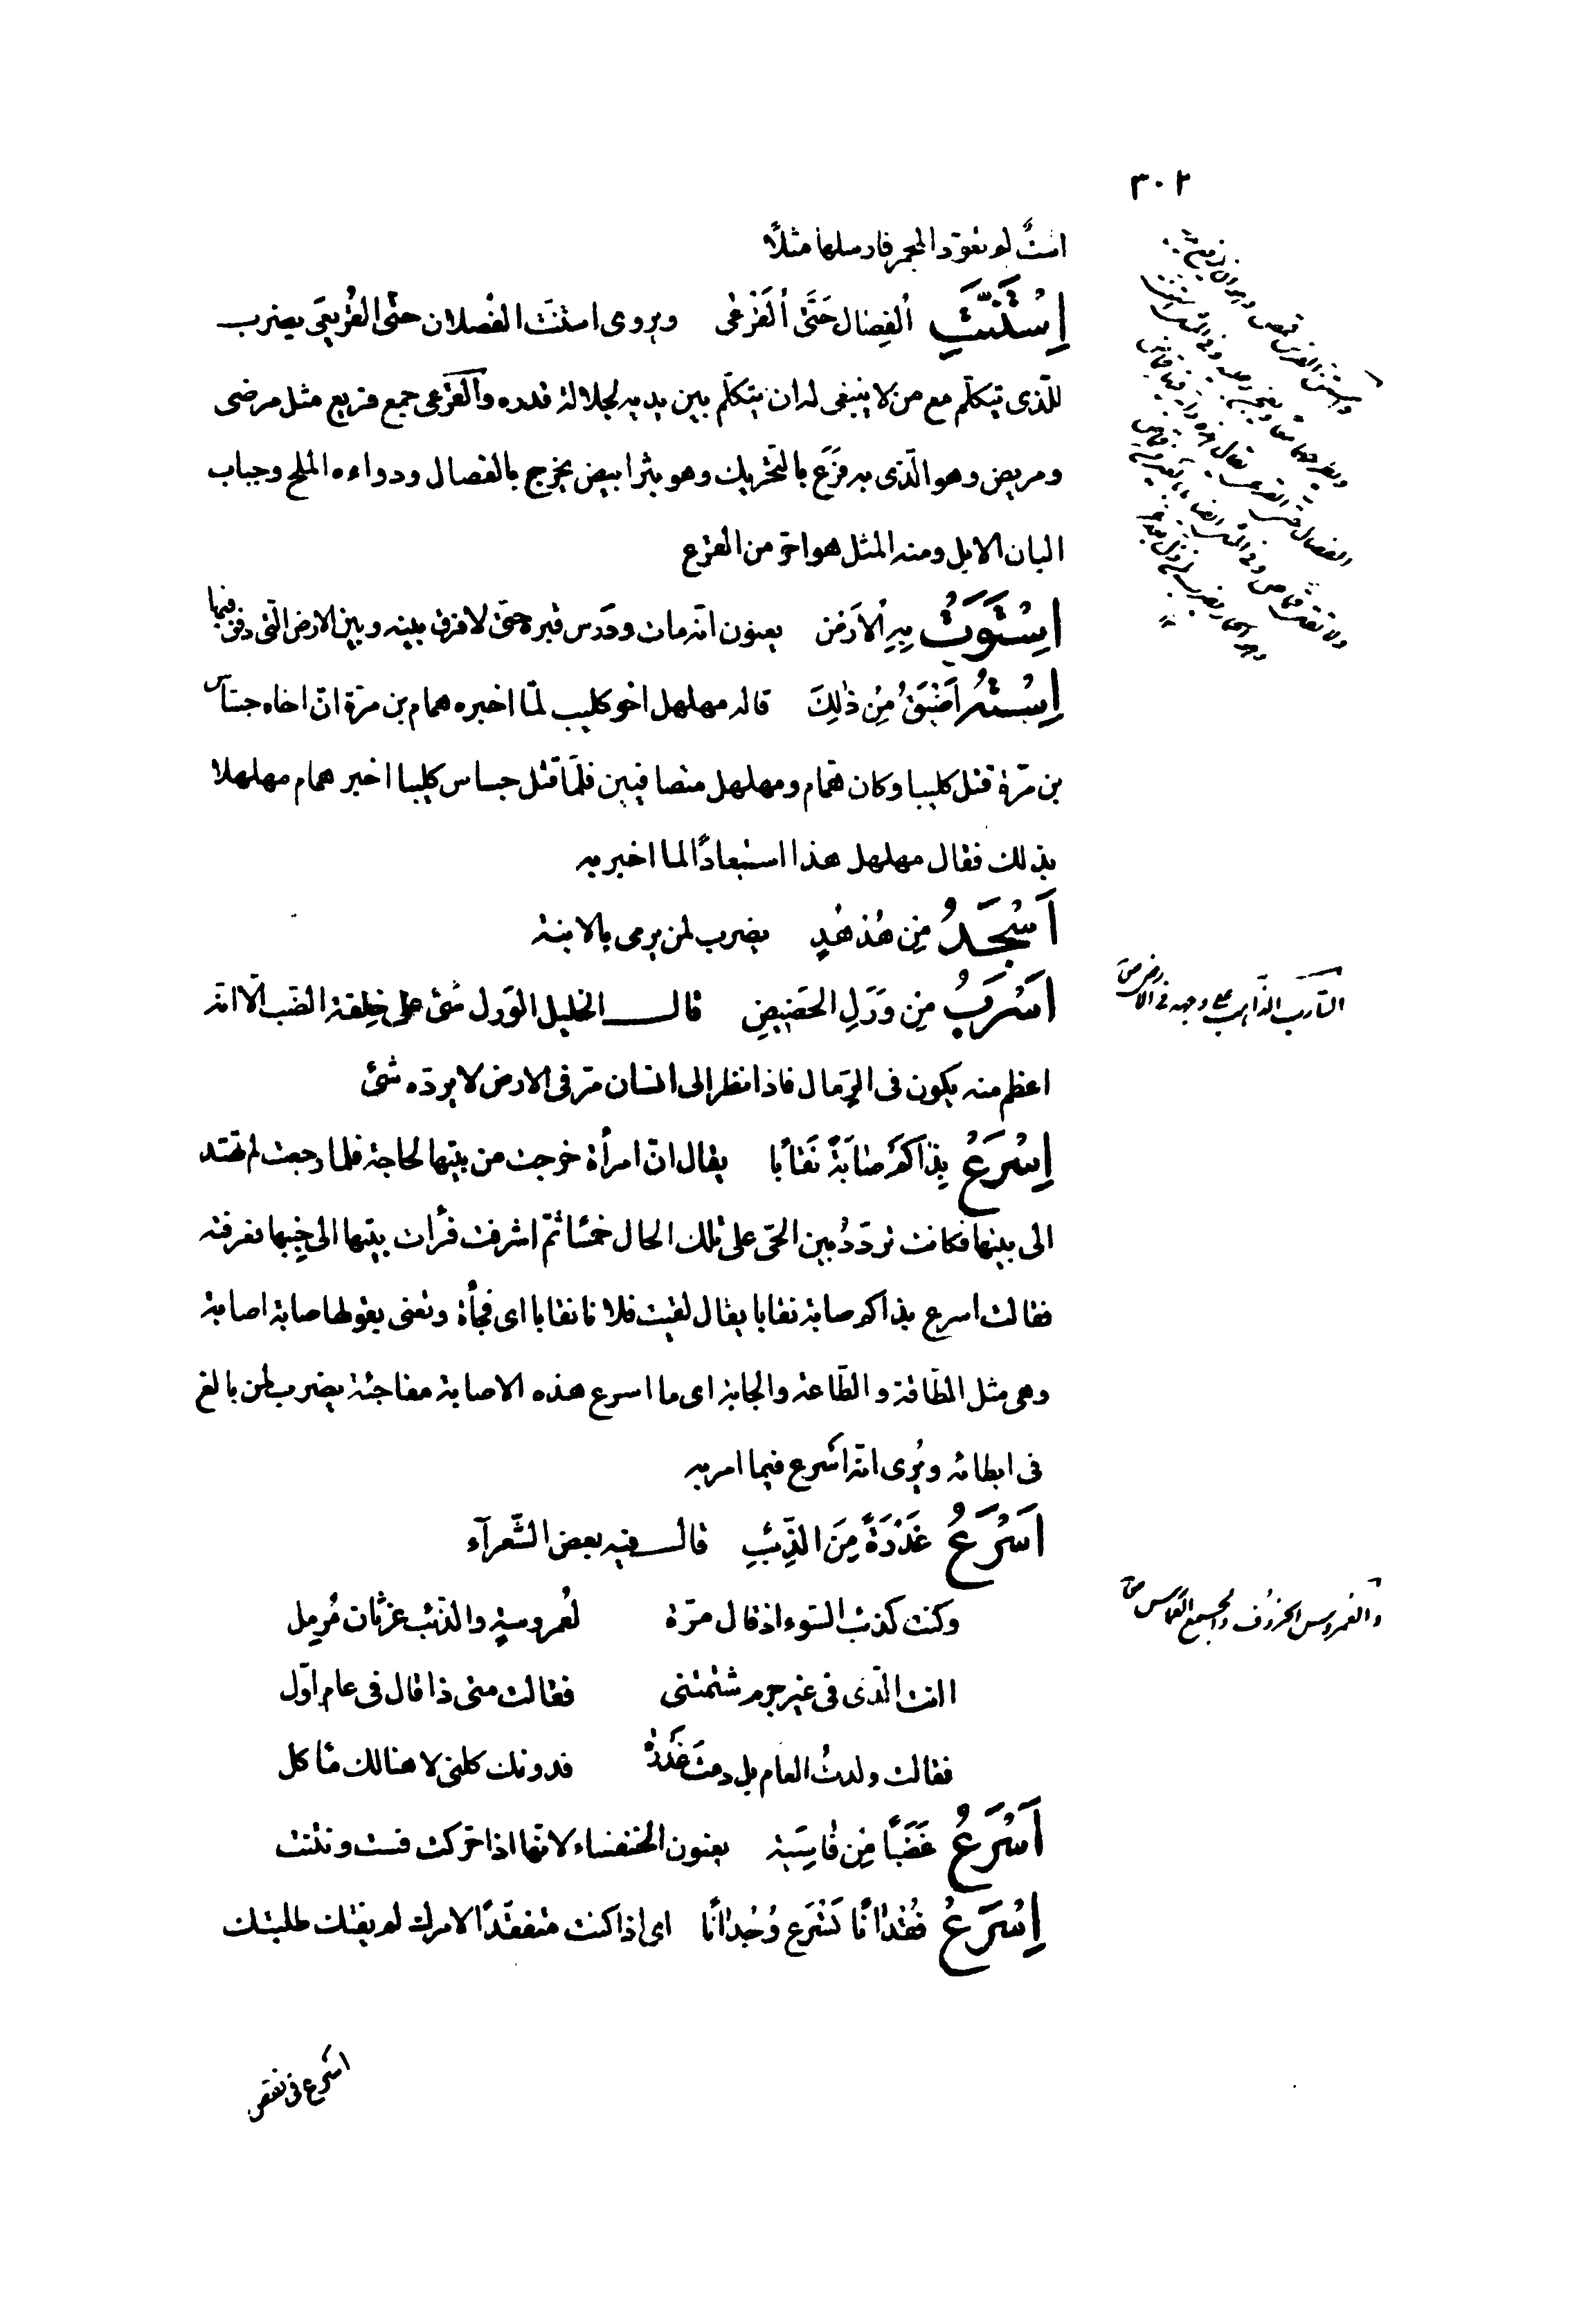 ٣٠٢
است لم تعود المجمر فارسلها مثلًا
اِسْتَنَّتِ اُلفِصَال حَتَّى اُلقَرْعى ويروى استنت الفصلان حتى القريعى يضرب
للّذى يتكلّم مع من لا ينبغى له ان يتكلّم بين يديه لجلالة قدره والقَرعى جمع قريع مثل مرضى
ومريض وهو الّذى به قَرَع بالتّحريك وهو بثر ابيض يخرج بالفصال ودواءه الملح وجباب
البان الابل ومنه المثل هو احرّ من القرع
اسْتَوَتْ بِهِ اُلاَرْضُ يعنون انّه مات ودَرس قبره حتى لا فرق بينه وبين الارض الّتى دفن فيها
اِسْتُهُ اَضْيَقُ مِنْ ذٰلِكَ قاله مهلهل اخو كليب لمّا اخبره همام بن مرّة انّ اخاه جسّاس
بن مرّة قتل كليبا وكان همّام ومهلهل متصافيين فلمّا قتل جساس كليبا اخبر همام مهلهلا
بذلك فقال مهلهل هذا استبعادًا لما اخبر به
اَسْجَدُ مِن هُدْهُدٍ يضرب لمن يرمى بالابنة
اَسْرَبُ مِن وَرَلِ الحَضِيضِ قال الخليل الوَرل شئ على خِلقة الضّب الّا انّه
اعظم منه يكون فى الرّمال فاذا نظر الى انسان مرّ فى الارض لا يردّه شئ
اِسْرَعْ بِذَاكُم صابَةً نَقابًا يقال انّ امرأة خرجت من بيتها لحاجة فلما رجعت لم تهتد
الى بيتها فكانت تردّدُ بين الحىّ على تلك الحال خمسًا ثمّ اشرفت فرأت بيتها الى جنبها فعرفته
فقالت اسرع بذاكم صابة نقابا يقال لقيت فلانا نقابا اى فجأة وتعنى بقولها صابة اصابة
وهى مثل الطّاقة و الطّاعة والجابة اى ما اسرع هذه الاصابة مفاجئة يضرب لمن بالغ
فى ابطائه ويُرى انّه اسَرع فيما امر به
اَسْرَعُ غَدْرَةً مِنَ الذِّئبِ قال فيه بعض الشّعرآء
وكنت كذئب السّوء اذ قال مرّة لعُمروسةٍ والذّئب غرثان مُرمِل
اانت الّذى فى غير جرم شتمتنى فقالت متى ذا قال فى عام اوّل
فقالت ولدتُ العام بل رمتَ غَدرةً فدونك كلنى لا هنالك مأكل
اَسْرَعُ غَضَبًا مِن فَاسِيَةٍ يعنون الخنفساء لانّها اذا حرّكت فست ونتنت
اِسْرَعُ فُقْدَانًا تَسْرَع وُجْدَانًا اى اذا كنت متفقّدًا لامرك لم يفتك طلبتك
اسَرع فى نقض